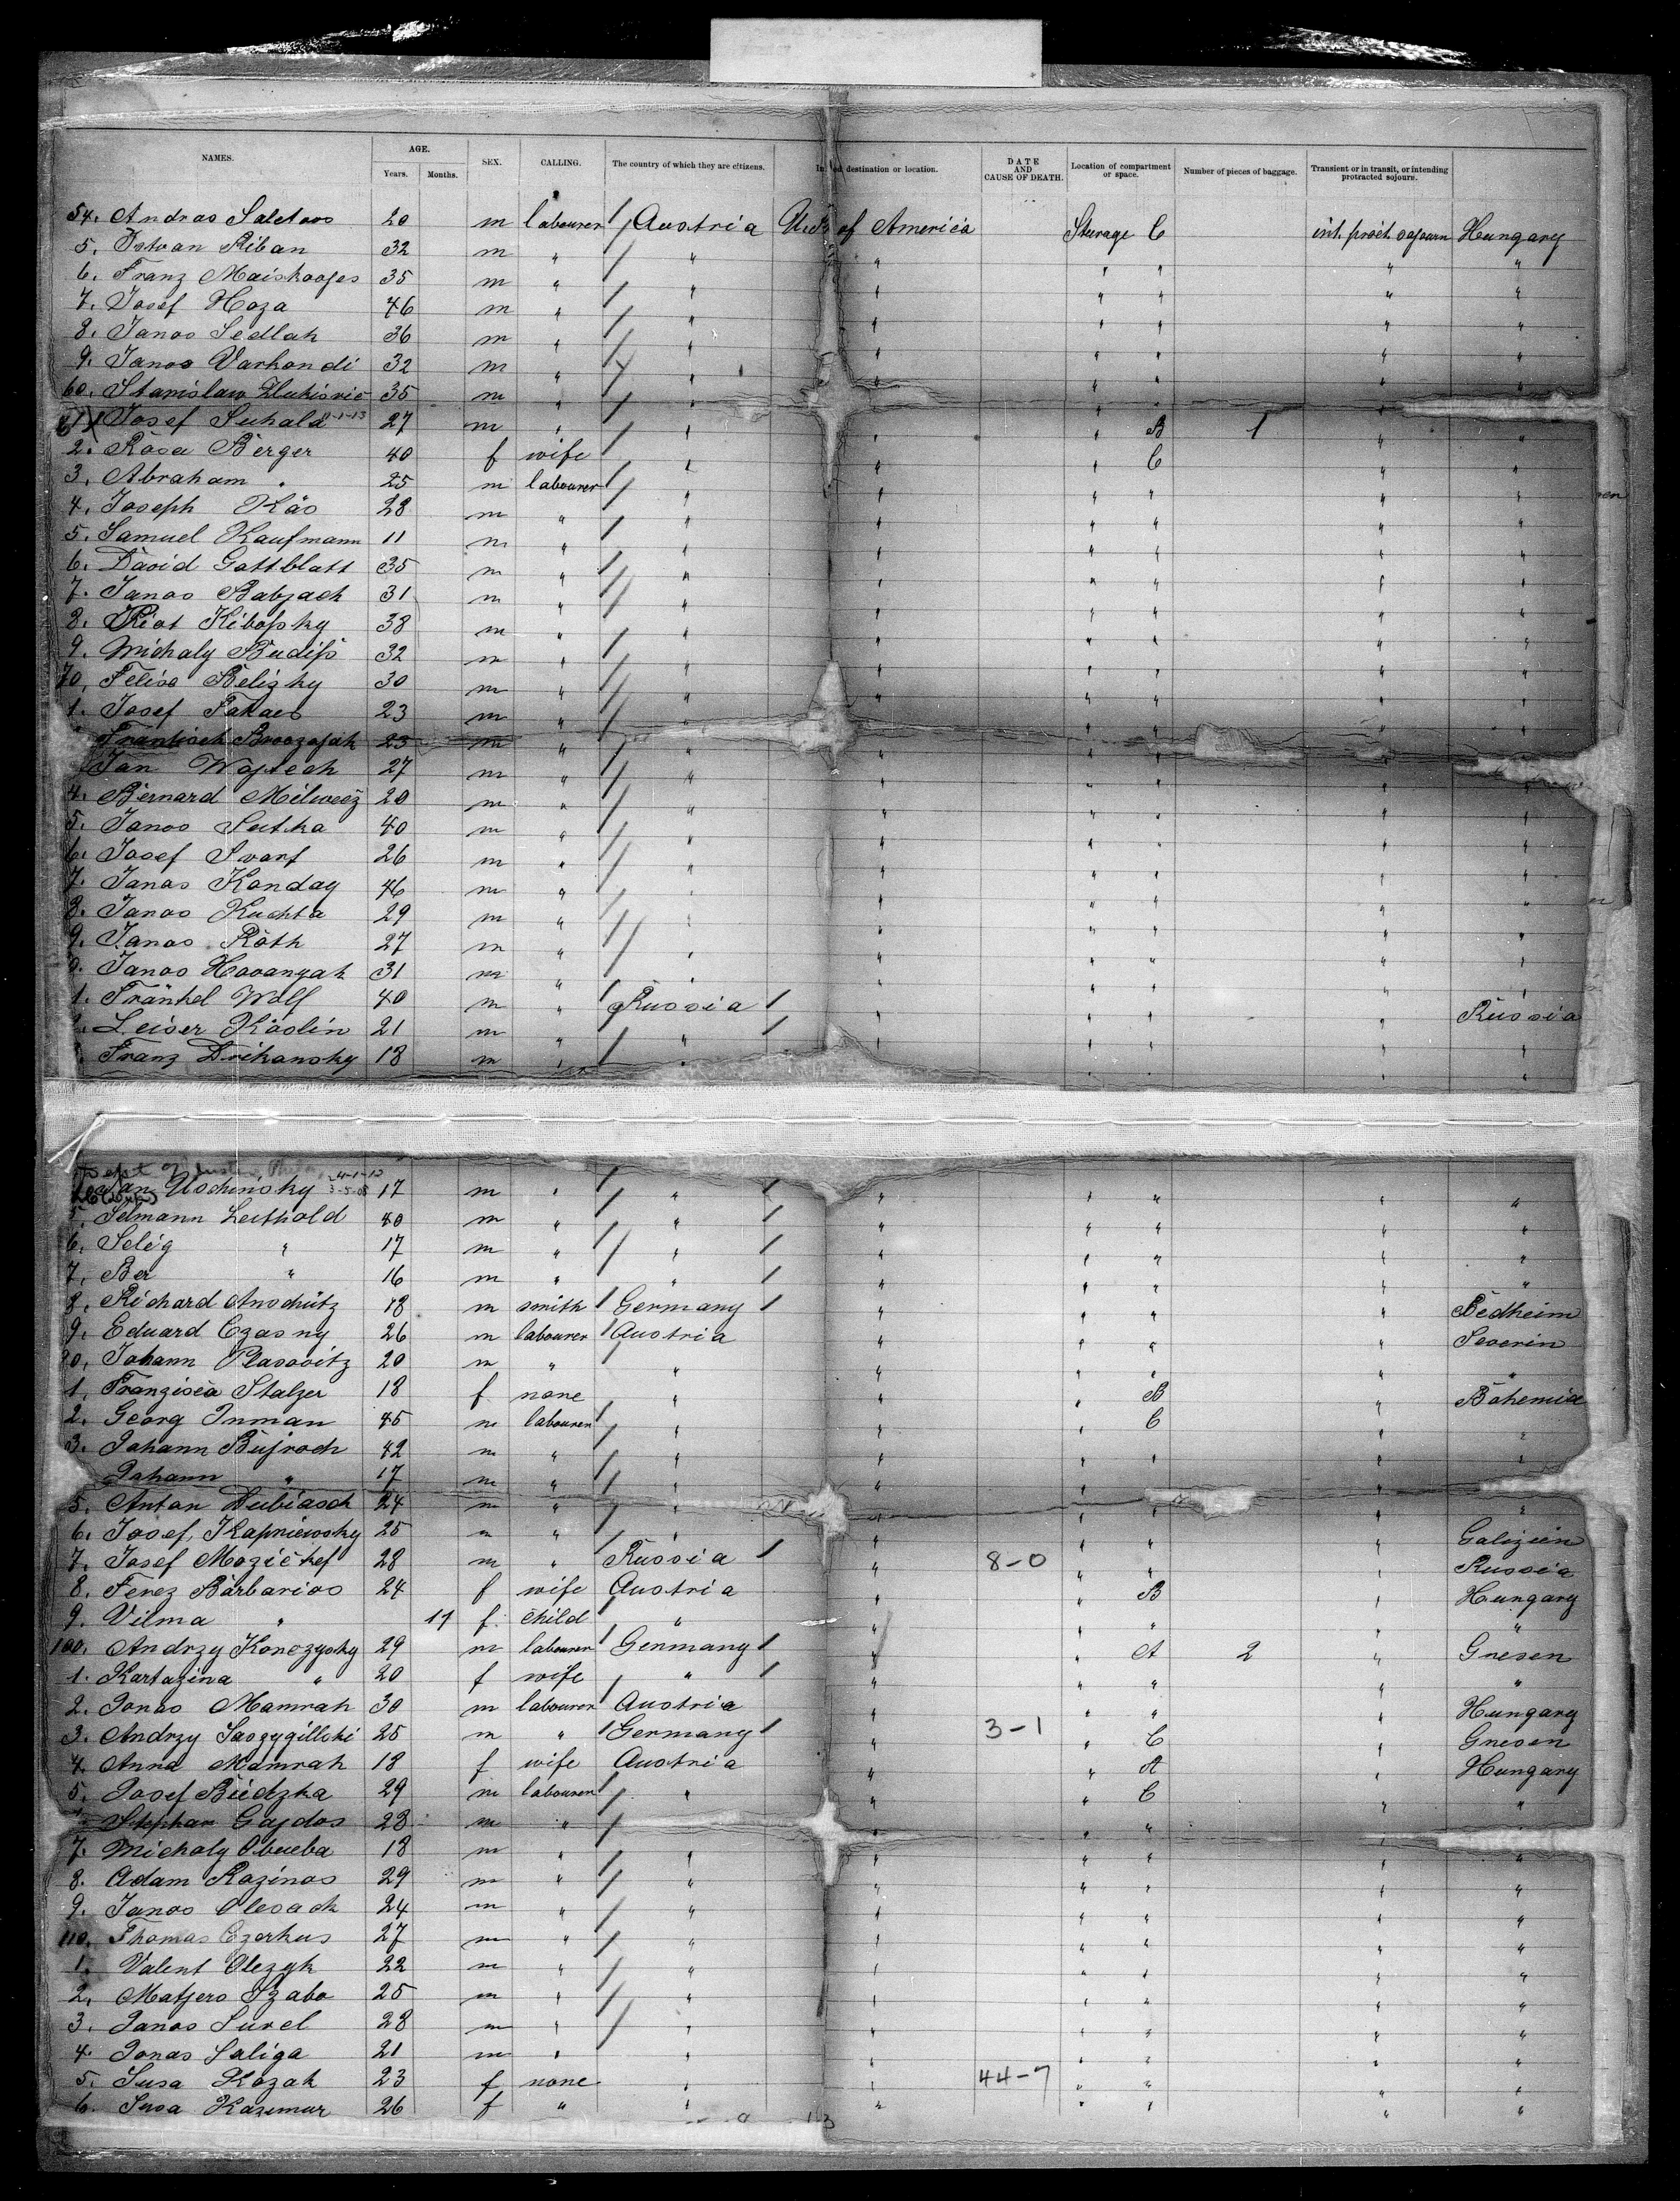 NAMES. AGE. Years. Months. SEX. CALLING. The country of which they are citizens. destination or location. DATE AND CAUSE OF DEATH. Location of compartment or space. Number of pieces of baggage. Transient or in transit, or intending protracted sojourn.
54. Andras 20 m labourer Austria U.S. of America Sturage C int. proit. sojourn Hungary
5. Istvan Riban 32 m " " " " " " "
6. Franz 35 m " " " " " " "
7. Josef Hoza 46 m " " " " " " "
8. Janos Sedlak 36 m " " " " " " "
9. Janos Varkondi 32 m " " " " " " "
60. Stanislaw 35 m " " " " " " "
61 Josef Suhala 1-13 27 m " " " " B 1 " "
2. Rosa Berger 40 f wife " " " C " "
3. Abraham " 25 m labourer " " " " " "
4. Joseph Kás 28 m " " " " " " "
5. Samuel Kaufmann 11 m " " " " " " "
6. David Gottblatt 35 m " " " " " " "
7. Janos Babjack 31 m " " " " " " "
8. 38 m " " " " " " "
9. Michaly Budiss 32 m " " " " " " "
70. Felise Belizky 30 m " " " " " " "
1. Josef Takacs 23 m " " " " " " "
23 m " " " " " " "
Jan Wojtech 27 m " " " " " " "
4. Bernard 20 m " " " " " " "
5. Janos Sutka 40 m " " " " " " "
6. Josef Swarf 26 m " " " " " " "
7. Janos Konday 46 m " " " " " " "
8. Janos Kuchta 29 m " " " " " " "
9. Janos Roth 27 m " " " " " " "
0. Janos Hovanyak 31 m " " " " " " "
1. Fränkel Wolf 40 m " Russia " " " " Russia
2. Leiser Koslin 21 m " " " " " " "
Franz Drikansky 18 m " " " " " " "
Jan Uschinsky 17 m " " " " " " "
5. Selmann Leithold 40 m " " " " " " "
6. Selig " 17 m " " " " " " "
7. Ber " 16 m " " " " " " "
8. Richard Anschütz 18 m smith Germany " " " " Bedheim
9. Eduard Czasny 26 m labourer Austria " " " " Severin
90. Johann Plasovitz 20 m " " " " " " "
1. Franzisca Stalzer 18 f none " " " B " Bohemia
2. Georg Inman 45 m labourer " " " C " "
3. Johann Bujroch 42 m " " " " " " "
Johann " 17 m " " " " " " "
5. Anton Dubiasch 24 m " " " " " " "
6. Josef Kapniewsky 25 m " " " " " " Galizien
7. Josef 28 m " Russia " 8-0 " " " Russia
8. Ferez Barbarios 24 f wife Austria " " B " Hungary
9. Vilma " 11 f child " " " " " "
100. Andrzy Konczysky 29 m labourer Germany " " A 2 " Gnesen
1. Kartazina " 20 f wife " " " " " "
2. Jonas Mamrah 30 m labourer Austria " " " " Hungary
3. Andrzy 25 m " Germany " 3-1 " C " Gnesen
4. Anna Mamrah 18 f wife Austria " " A " Hungary
5. Josef Budzka 29 m labourer " " " C " "
Stephan Gajdos 28 m " " " " " " "
7. Michaly Obueba 18 m " " " " " " "
8. Adam Razinos 29 m " " " " " " "
9. Janos Olesack 24 m " " " " " " "
110. Thomas Ezerkus 27 m " " " " " " "
1. Valent Olezyk 22 m " " " " " " "
2. Matjero Szabo 25 m " " " " " " "
3. Janos Surel 28 m " " " " " " "
4. Jonas Saliga 21 m " " " " " " "
5. Susa Kozak 23 f none " " 44-7 " " " "
6. Susa Kazimur 26 f " " " " " " "